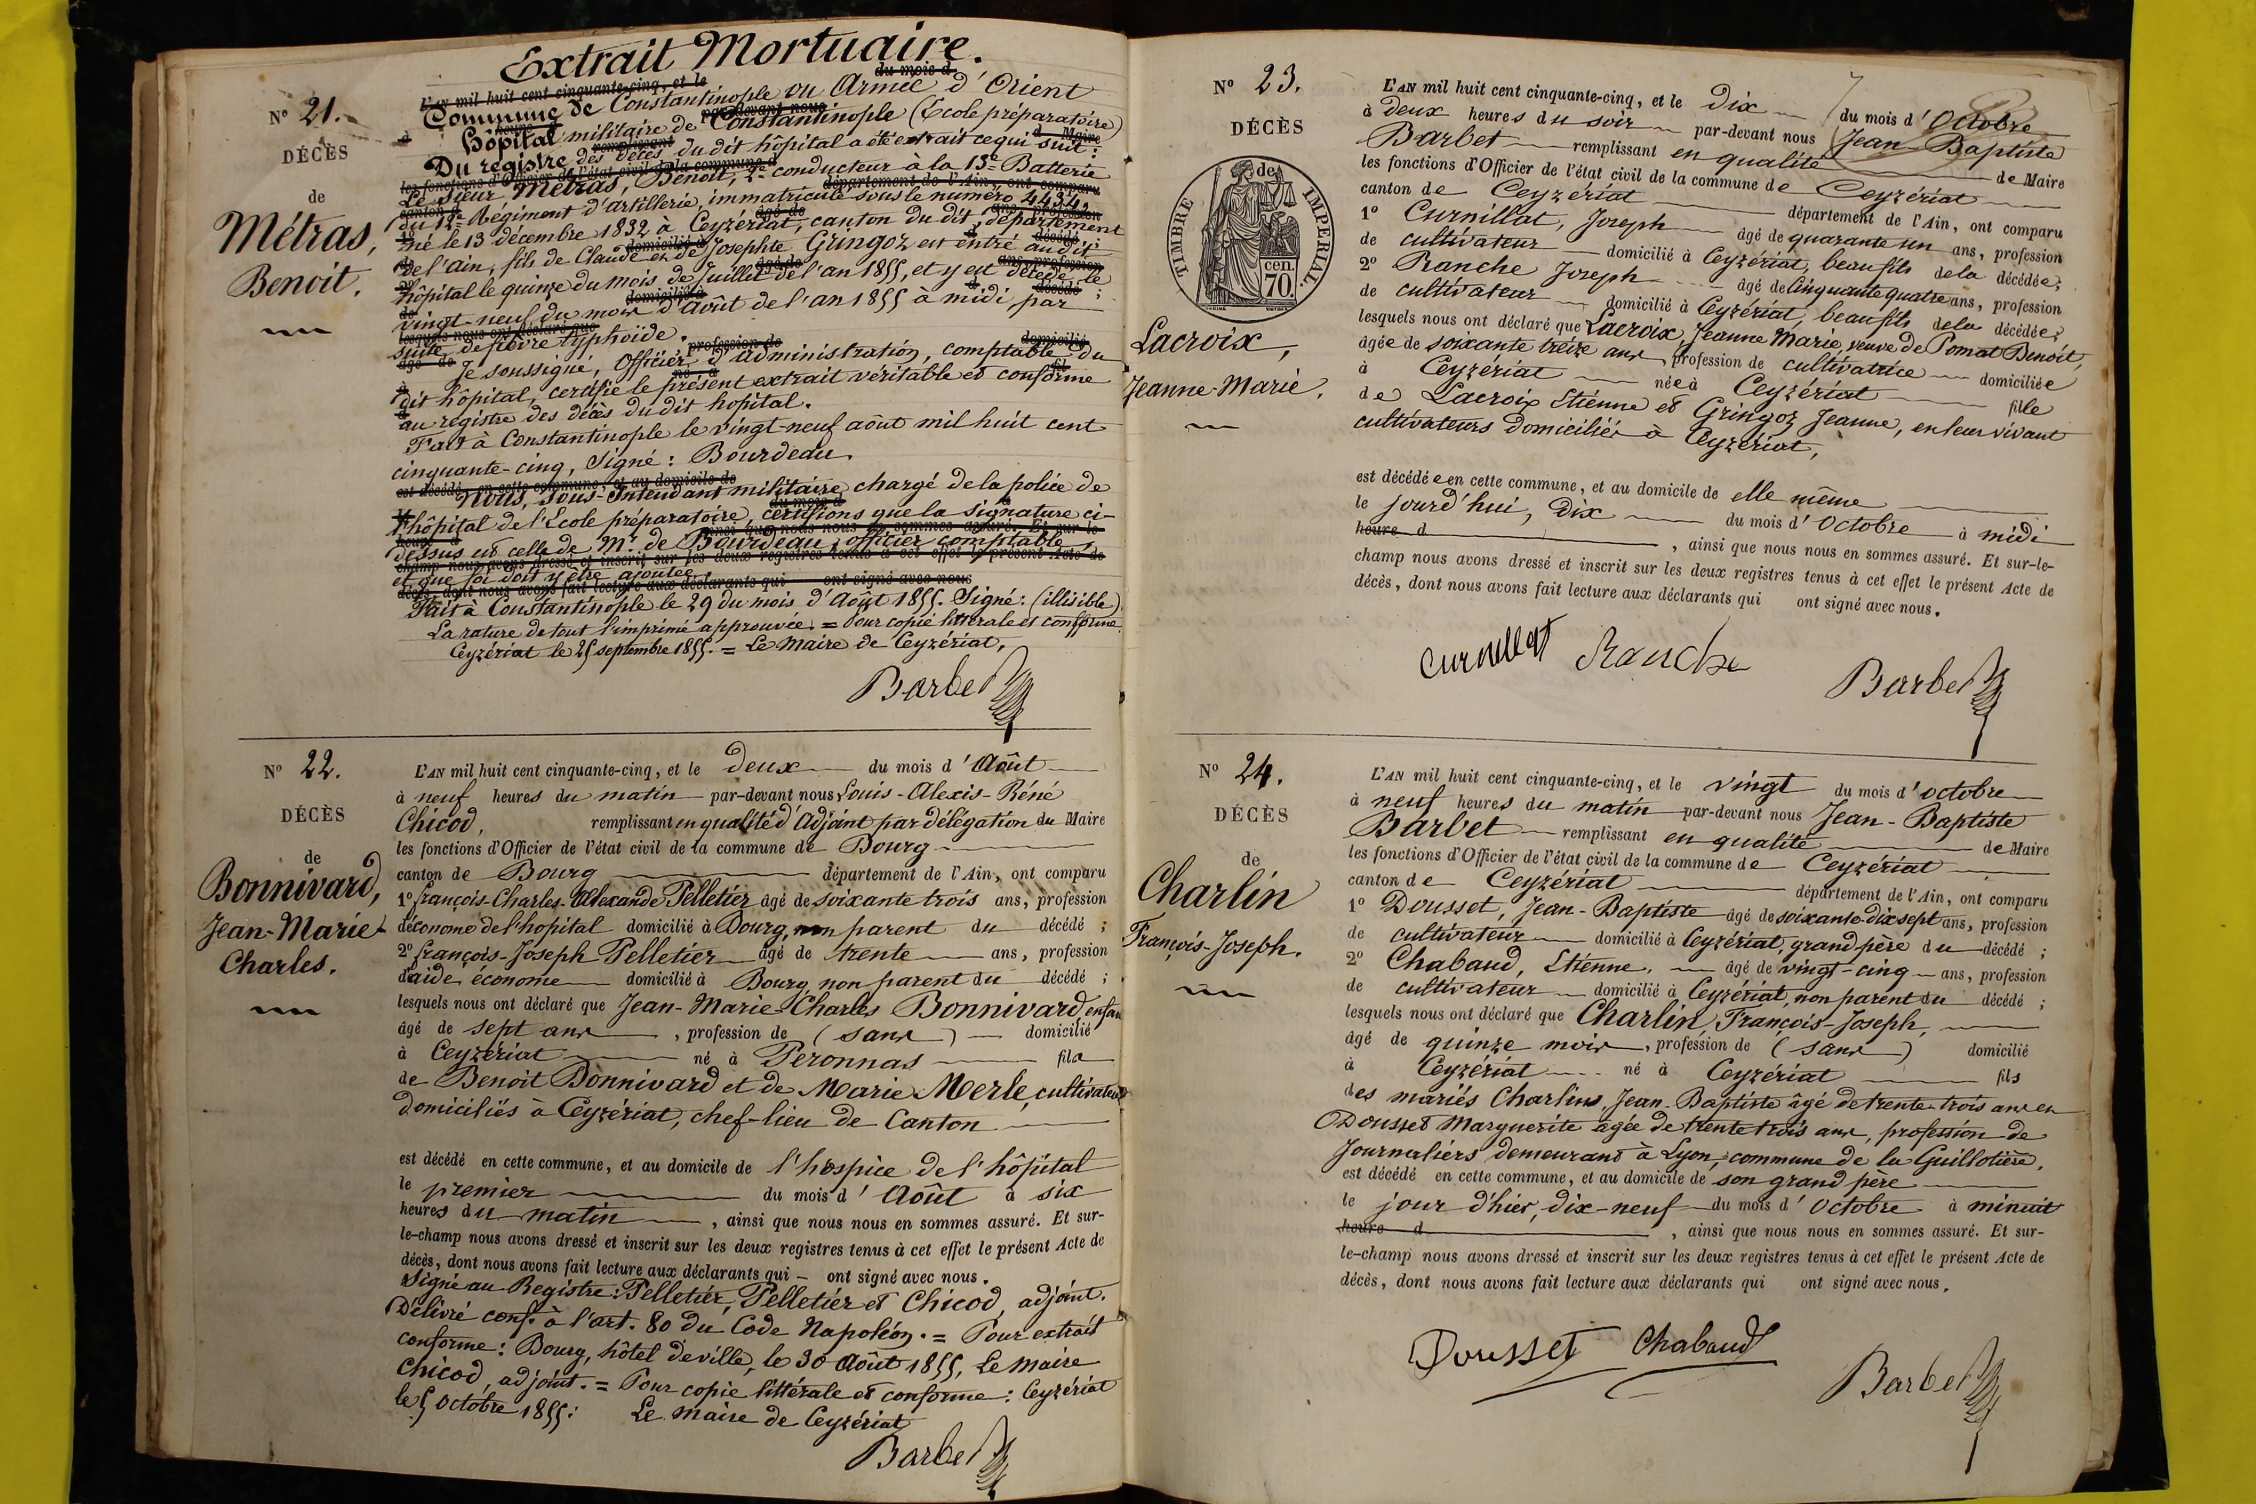 Extrait Mortuaire.
N° 21.
DÉCÈS
de
Métras,
Benoit.
L'AN mil huit cent cinquante-cinq, et le du mois d
Commune de Constantinople ou Armée d'Orient
par-devant nous
Hôpital militaire de Constantinople (École préparatoire)
Du registre des décès du dit hôpital a été extrait ce qui suit :
les fonctions d'Officier de l'état civil de la commune d
Le Sieur Métras, Benoit, 2e conducteur à la 13e Batterie
département de l'Ain, ont comparu
du 12e Régiment d'artillerie, immatriculé sous le numéro 4434,
né le 13 décembre 1832 à Ceyzériat, canton du dit, département
de l'ain, fils de Claude et de Josephte Gringoz est entré au dit
hôpital le quinze du mois de Juillet de l'an 1855, et y est décédé le
vingt-neuf du mois d'Août de l'an 1855 à midi par
lesquels nous ont déclaré que
suite de fièvre typhoïde.
Je soussigné, Officier d'administration, comptable du
dit hôpital, certifie le présent extrait véritable et conforme
au registre des décès du dit hopital.
Fait à Constantinople le vingt-neuf août mil huit cent
cinquante-cinq, Signé : Bourdeau.
est décédé en cette commune, et au domicile de
Nous, Sous-Intendant militaire chargé de la police de
l'hôpital de l'École préparatoire, certifions que la signature ci-
ainsi que nous nous en sommes assuré. Et sur-le-
dessus est celle de Mr. de Bourdeau, officier comptable,
champ nous avons dressé et inscrit sur les deux registres tenus à cet effet le présent Acte de
et que foi doit y être ajoutée.
décès, dont nous avons fait lecture aux déclarants qui ont signé avec nous
Fait à Constantinople le 29 du mois d'Août 1855. Signé : (illisible)
La rature de tout l'imprimé approuvée. = Pour copie littérale et conforme
Ceyzériat le 25 septembre 1855. = Le Maire de Ceyzériat,
Barbet
N° 22.
DÉCÈS
de
Bonnivard,
Jean-Marie
Charles.
L'AN mil huit cent cinquante-cinq, et le deux du mois d'Août
à neuf heures du matin par-devant nous Louis-Alexis-Réné
Chicod, remplissant en qualité d'Adjoint par délégation du Maire
les fonctions d'Officier de l'état civil de la commune de Bourg
canton de Bourg département de l'Ain, ont comparu
1° françois-Charles-Alexande Pelletier âgé de soixante trois ans, profession
d'économe de l'hopital domicilié à Bourg, non parent du décédé ;
2° françois-Joseph Pelletier âgé de trente ans, profession
d'aide économe domicilié à Bourg non parent du décédé ;
lesquels nous ont déclaré que Jean-Marie-Charles Bonnivard, enfant
âgé de sept ans, profession de (sans) domicilié
à Ceyzériat né à Péronnas fils
de Benoit Bonnivard et de Marie Merle, cultivateurs
domiciliés à Ceyzériat, chef-lieu de Canton
est décédé en cette commune, et au domicile de l'hospice de l'hôpital
le premier du mois d'Août à six
heures du matin, ainsi que nous nous en sommes assuré. Et sur-
le-champ nous avons dressé et inscrit sur les deux registres tenus à cet effet le présent Acte de
décès, dont nous avons fait lecture aux déclarants qui – ont signé avec nous.
Signé au Registre : Pelletier, Pelletier et Chicod, adjoint.
Délivré conf. à l'art. 80 du Code Napoléon. = Pour extrait
conforme : Bourg, hôtel de ville, le 30 Août 1855, Le Maire
Chicod, adjoint. = Pour copie littérale et conforme : Ceyzériat
le 5 Octobre 1855 : Le Maire de Ceyzériat
Barbet
N° 23.
DÉCÈS
de
TIMBRE IMPERIAL.
cen.
70.
Lacroix,
Jeanne-Marie.
L'AN mil huit cent cinquante-cinq, et le dix du mois d'Octobre
à deux heures du soir par-devant nous Jean-Baptiste
Barbet remplissant en qualité de Maire
les fonctions d'Officier de l'état civil de la commune de Ceyzériat
canton de Ceyzériat département de l'Ain, ont comparu
1° Curnillat, Joseph âgé de quarante un ans, profession
de cultivateur domicilié à Ceyzériat, beau fils de la décédée ;
2° Ranche Joseph âgé de Cinquante quatre ans, profession
de cultivateur domicilié à Ceyzériat, beau fils de la décédée ;
lesquels nous ont déclaré que Lacroix, Jeanne Marie, veuve de Pomat Benoît,
âgée de soixante treize ans, profession de cultivatrice domiciliée
à Ceyzériat née à Ceyzériat fille
de Lacroix Etienne et Gringoz Jeanne, en leur vivant
cultivateurs domiciliés à Ceyzériat,
est décédée en cette commune, et au domicile de elle même
le jourd'hui, dix du mois d'Octobre à midi
heure d , ainsi que nous nous en sommes assuré. Et sur-le-
champ nous avons dressé et inscrit sur les deux registres tenus à cet effet le présent Acte de
décès, dont nous avons fait lecture aux déclarants qui ont signé avec nous.
Curnillat Ranche
Barbet
N° 24.
DÉCÈS
de
Charlin
François-Joseph.
L'AN mil huit cent cinquante-cinq, et le vingt du mois d'octobre
à neuf heures du matin par-devant nous Jean-Baptiste
Barbet remplissant en qualité de Maire
les fonctions d'Officier de l'état civil de la commune de Ceyzériat
canton de Ceyzériat département de l'Ain, ont comparu
1° Dousset, Jean-Baptiste âgé de soixante-dix sept ans, profession
de cultivateur domicilié à Ceyzériat, grand père du décédé ;
2° Chabaud, Etienne, âgé de vingt-cinq ans, profession
de cultivateur domicilié à Ceyzériat, non parent du décédé ;
lesquels nous ont déclaré que Charlin, François-Joseph,
âgé de quinze mois, profession de (sans) domicilié
à Ceyzériat né à Ceyzériat fils
des mariés Charlins, Jean-Baptiste âgé de trente-trois ans et
Dousset Marguerite agée de trente trois ans, profession de
Journaliers demeurant à Lyon, commune de la Guillotière,
est décédé en cette commune, et au domicile de son grand père
le jour d'hier, dix-neuf du mois d'Octobre à minuit
heure d , ainsi que nous nous en sommes assuré. Et sur-
le-champ nous avons dressé et inscrit sur les deux registres tenus à cet effet le présent Acte de
décès, dont nous avons fait lecture aux déclarants qui ont signé avec nous.
Dousset Chabaud
Barbet